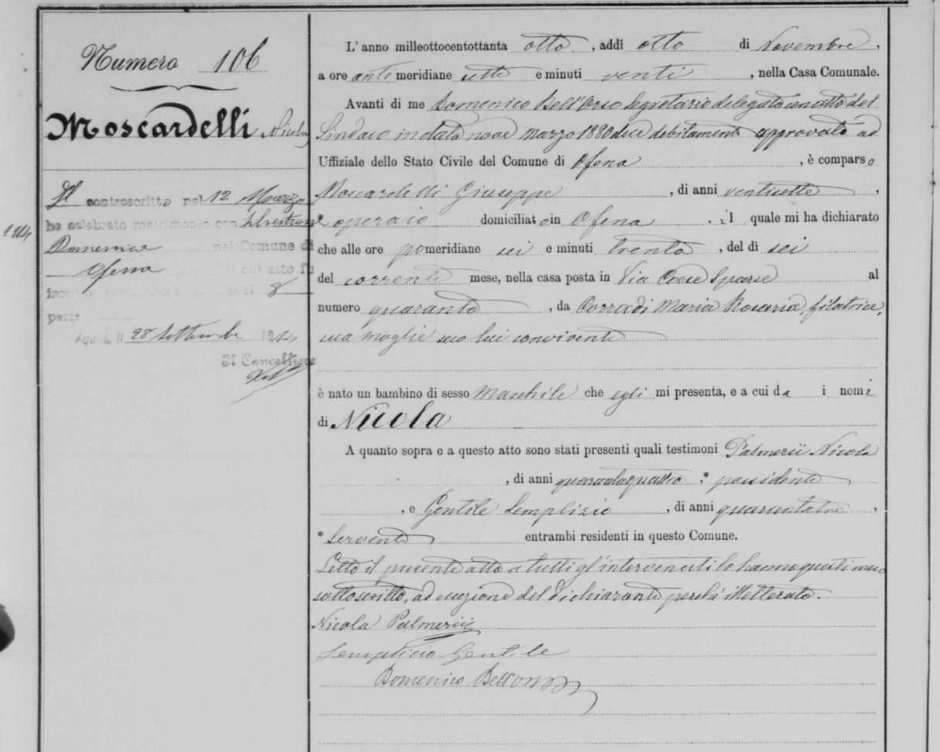 Numero 106
Moscardelli Nicola
Il controscritto nel 12 Marzo
1914 ha celebrato matrimonio con Silvestrone
Domenica nel Comune di
Ofena
8
parte
28 Settembre 1914
Il Cancelliere
L'anno milleottocentottanta otto, addì otto di Novembre,
a ore antimeridiane sette e minuti venti, nella Casa Comunale.
Avanti di me Domenico Dell'Orso Segretario delegato con atto del
Sindaco in data nove Marzo 1880 debitamente approvato ad
Uffiziale dello Stato Civile del Comune di Ofena, è comparso
Moscardelli Giuseppe, di anni ventisette,
operaio domiciliato in Ofena. Il quale mi ha dichiarato
che alle ore pomeridiane sei e minuti trenta, del dì sei
del corrente mese, nella casa posta in Via al
numero quaranta, da Corradi Maria Rosaria, filatrice,
sua moglie seco lui convivente
è nato un bambino di sesso Maschile che egli mi presenta, e a cui da i nomi
di Nicola
A quanto sopra e a questo atto sono stati presenti quali testimoni Palmerii Nicola
, di anni quarantaquattro, possidente
, e Gentile Semplizio, di anni quarantatre,
Servente entrambi residenti in questo Comune.
Letto il presente atto a tutti gl'intervenuti lo hanno questi meco
sottoscritto, ad eccezione del dichiarante perchè illetterato.
Nicola Palmerii
Semplicio Gentile
Domenico Dellorso